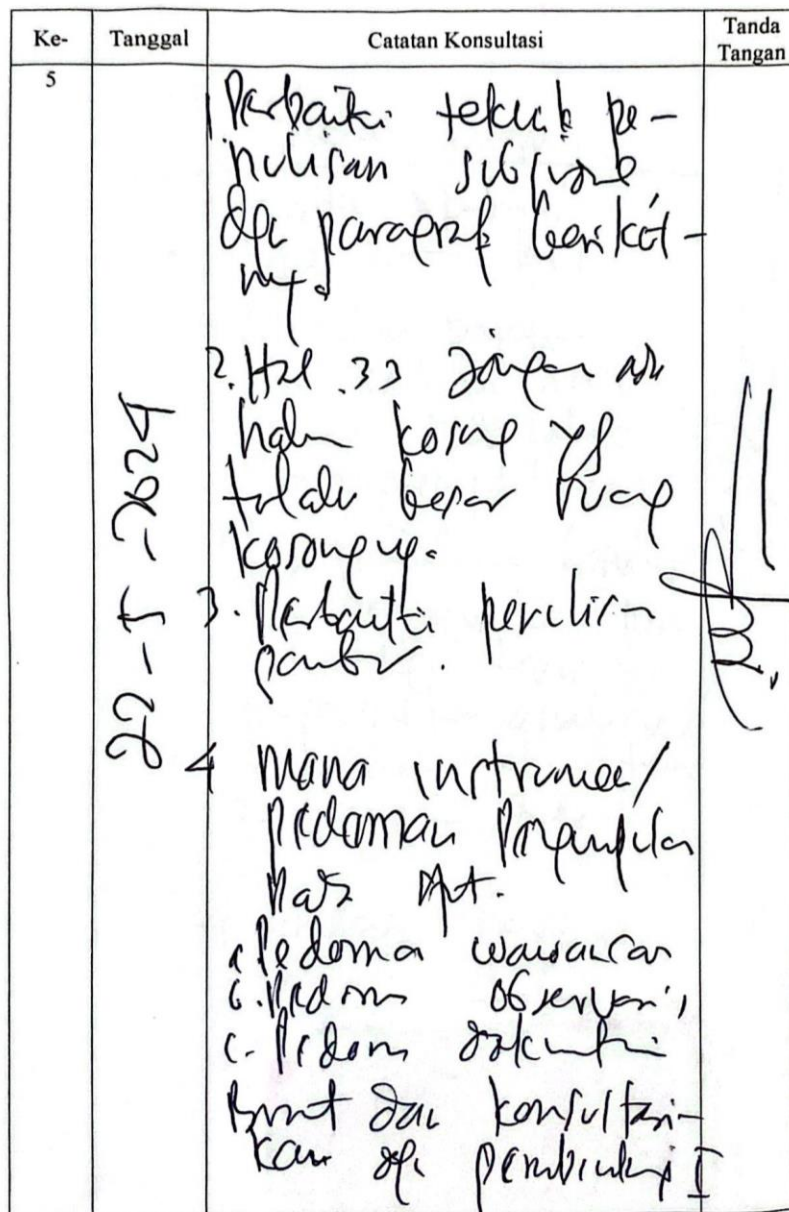 Ke- Tanggal Catatan Konsultasi Tanda Tangan
5
22-5-2024
1 Perbaiki teknik pe-
nulisan
dgn paragraf berikut-
nya
2. Hal. 33 jangan ada
halm kosong yg
terlalu besar ruang
kosongnya.
3. Perbaiki penulisan
gambar.
4 Mana instrumen/
Pedoman Pengumpulan
Data
a. Pedoman wawancara
b. Pedoman Observasi,
c. Pedoman dokumentasi
Buat dan konsultasi-
kan dgn pembimbing I